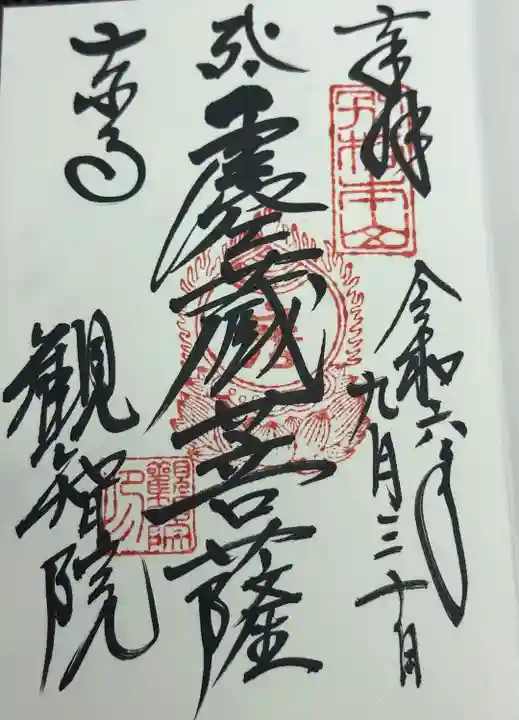 奉拝
令和六年
九月三十日
虚空蔵菩薩
東寺
観智院